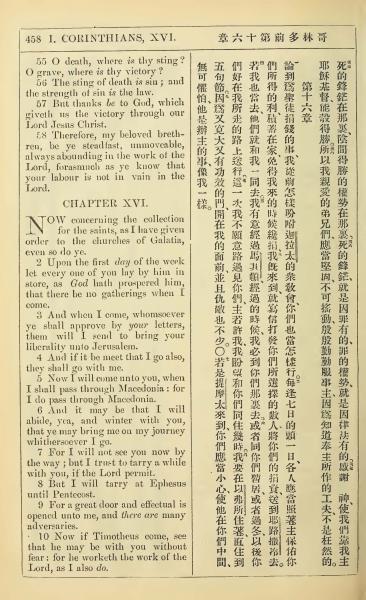 458 I. CORINTHIANS, XVI.
章六十第前多林哥
55 O death, where is thy sting?
O grave, where is thy victory?
56 The sting of death is sin; and
the strength of sin is the law.
57 But thanks be to God, which
giveth us the victory through our
Lord Jesus Christ.
58 Therefore, my beloved breth-
ren, be ye steadfast, unmoveable,
always abounding in the work of the
Lord, forasmuch as ye know that
your labour is not in vain in the
Lord.
CHAPTER XVI.
NOW concerning the collection
for the saints, as I have given
order to the churches of Galatia,
even so do ye.
2 Upon the first day of the week
let every one of you lay by him in
store, as God hath prospered him,
that there be no gatherings when I
come.
3 And when I come, whomsoever
ye shall approve by your letters,
them will I send to bring your
liberality unto Jerusalem.
4 And if it be meet that I go also,
they shall go with me.
5 Now I will come unto you, when
I shall pass through Macedonia: for
I do pass through Macedonia.
6 And it may be that I will
abide, yea, and winter with you,
that ye may bring me on my journey
whithersoever I go.
7 For I will not see you now by
the way; but I trust to tarry a while
with you, if the Lord permit.
8 But I will tarry at Ephesus
until Pentecost.
9 For a great door and effectual is
opened unto me, and there are many
adversaries.
10 Now if Timotheus come, see
that he may be with you without
fear: for he worketh the work of the
Lord, as I also do.
死的鋒鋩在那裏陰間得勝的權勢在那裏死的鋒鋩就是因罪有的罪的權勢就是因律法有的感謝 神使我們靠我主
耶穌基督能彀得勝所以我親愛的弟兄們應當堅固不可搖動殷殷勤勤服事主因爲知道奉主所作的工夫不是枉然的
第十六章
論到爲聖徒捐錢的事我從前怎樣吩咐迦拉太的衆敎會你們也當怎樣行每逢七日的頭一日各人應當照著主保佑你
們所得的利積蓄在家免得我來的時候纔捐我旣來到就寫信打發你們所選擇的數人將你們的捐貲送到耶路撒冷去
若我也當去他們就和我一同去我有意經過馬其頓經過的時候我必到你們那裏去或者同你們暫居或者過冬以後你
們好在我所走的路上送行這一次我不願意路過見你們主若許我我盼望和你們同住幾時我要在以弗所住著直住到
五旬節因爲又寬大又有功效的門開在我的面前並且仇敵也不少〇若是提摩太來到你們應當小心使他在你們中間
無可懼怕他是辦主的事像我一樣